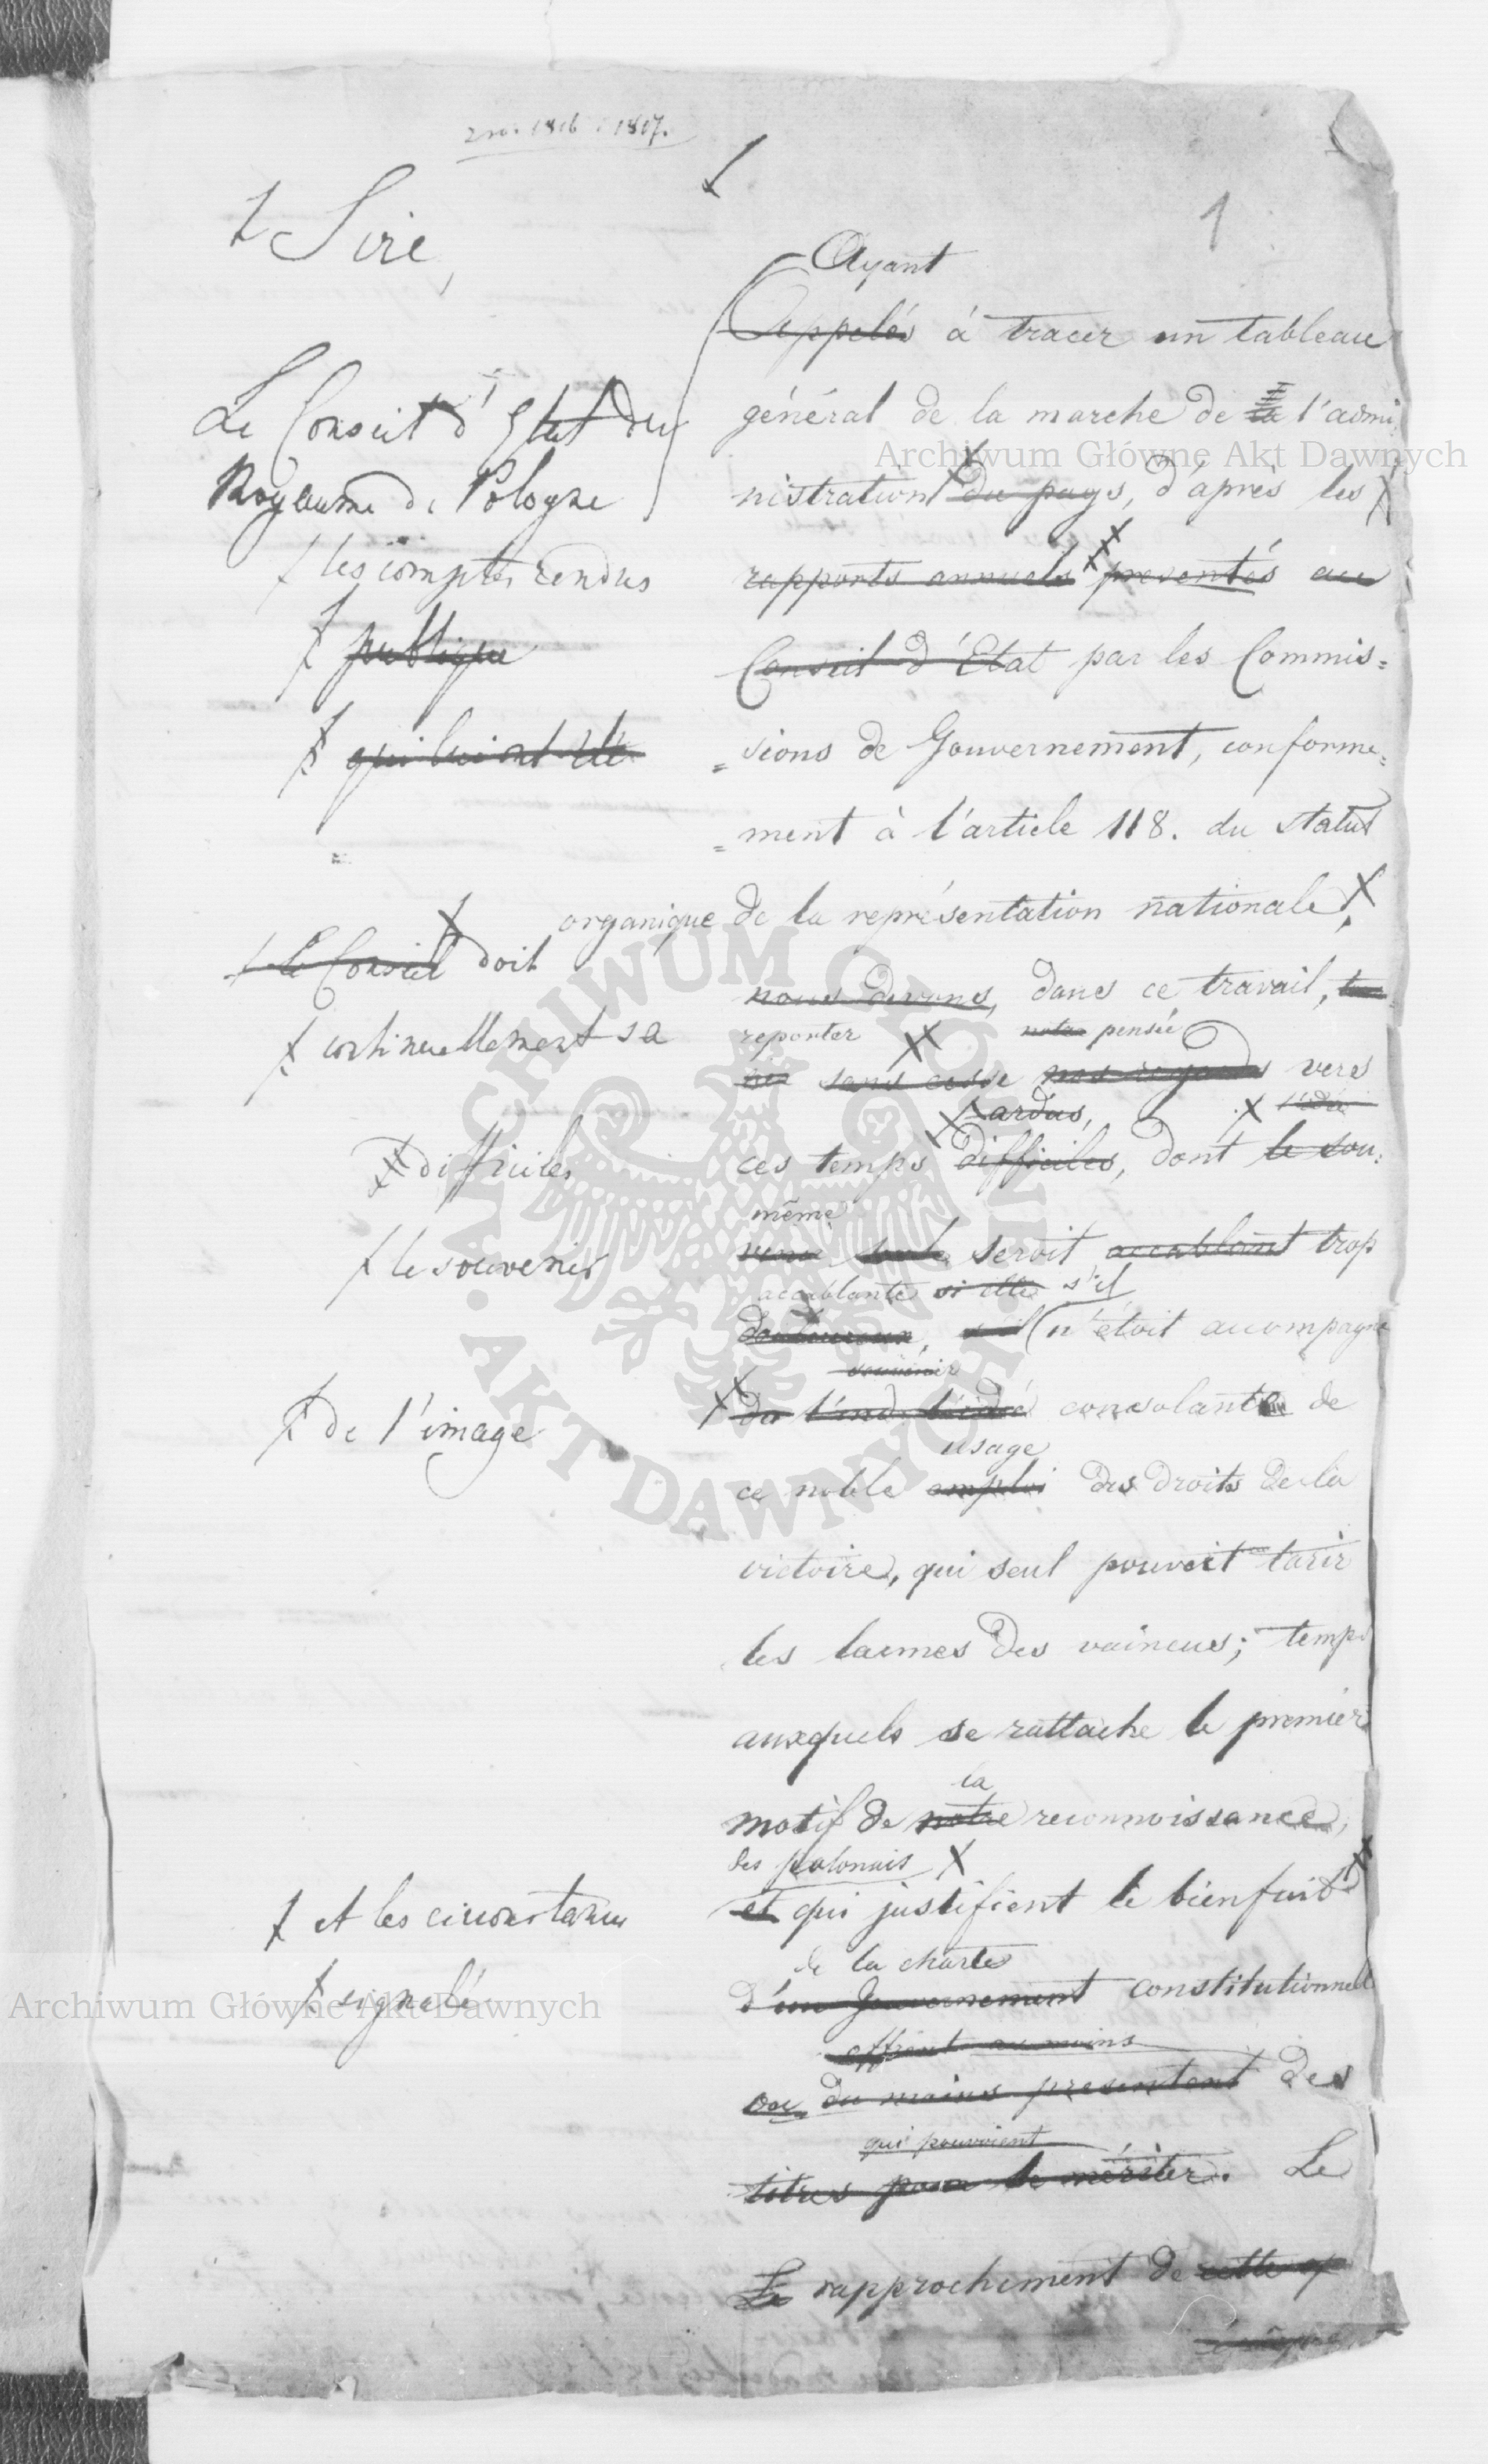 1816 i 1817.
1
Sire,
Ayant
Appelés à tracer un tableau
général de la marche de la l'admi
nistration du pays, d'après les
Le Conseil d'Etat du
Royaume de Pologne
les comptes rendus
rapports annuels presentés au
publique
Conseil d'Etat par les Commis=
qui lui ont été
=sions de Gouvernement, conforme=
=ment à l'article 118. du statut
organique de la représentation nationale
le Conseil doit
nous devons, dans ce travail,
continuellement sa
reporter notre pensée
sans cesse nos regards vers
ardus, l'idée
difficiles
ces temps difficiles, dont le sou=
même
le souvenir
venir seule seroit accablant trop
accablante si elle s'il
douloureux, s'il n'étoit accompagné
souvenir
de l'image
de l'idée consolante de
usage
ce noble emploi des droits de la
victoire, qui seul pouvoit tarir
les larmes des vaincus; temps
auxquels se rattache le premier
la
motif de notre reconnoissance,
des polonais
et les circonstances
et qui justifient le bienfait
signalé
de la charte
d'un Gouvernement constitutionnelle
offrent au moins
ou du moins presentent des
qui pouvoient
titres pour le mériter. Le
Le rapprochement de cette
Archiwum Główne Akt Dawnych
ARCHIWUM GŁÓWNE • AKT DAWNYCH •
Archiwum Główne Akt Dawnych